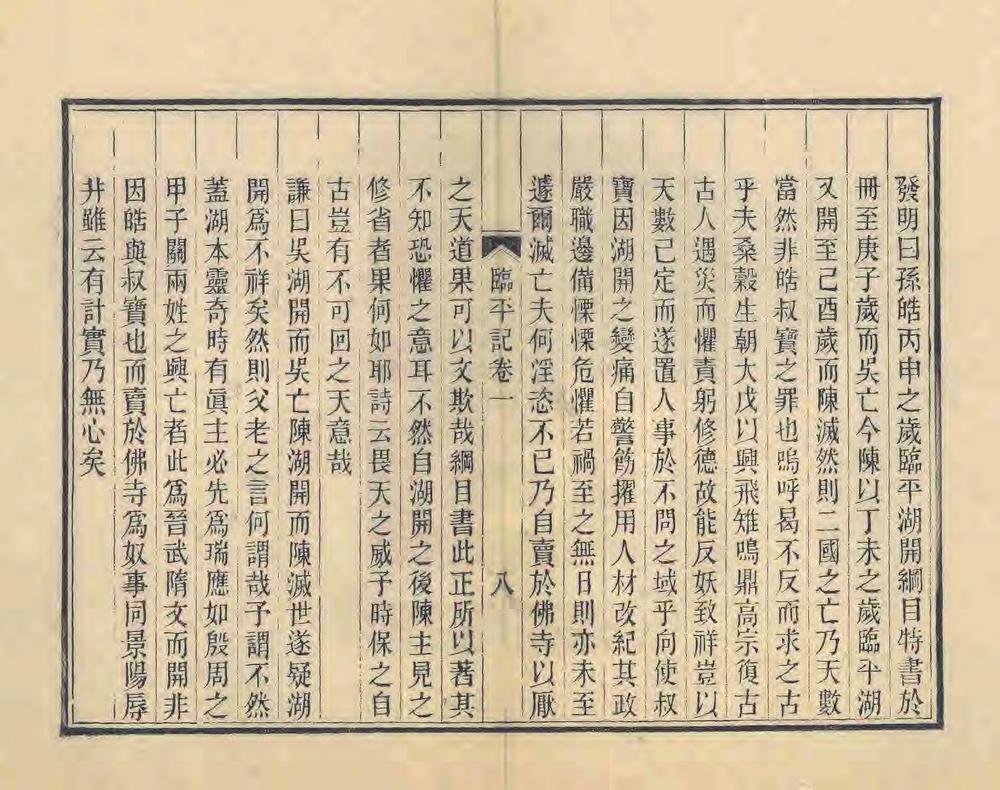 發明曰孫皓丙申之歲臨平湖開綱目特書於
冊至庚子歲而吳亡今陳以丁未之歲臨平湖
又開至己酉歲而陳滅然則二國之亡乃天數
當然非皓叔寶之罪也嗚呼曷不反而求之古
乎夫桑穀生朝大戊以興飛雉鳴鼎高宗復古
古人遇災而懼責躬修德故能反妖致祥豈以
天數已定而遂置人事於不問之域乎向使叔
寶因湖開之變痛自警飭擢用人材改紀其政
嚴職邊備慄慄危懼若禍至之無日則亦未至
遽爾滅亡夫何淫恣不已乃自賣於佛寺以厭
臨平記卷一 八
之天道果可以文欺哉綱目書此正所以著其
不知恐懼之意耳不然自湖開之後陳主見之
修省者果何如耶詩云畏天之威于時保之自
古豈有不可回之天意哉
謙曰吳湖開而吳亡陳湖開而陳滅世遂疑湖
開爲不祥矣然則父老之言何謂哉予謂不然
蓋湖本靈奇時有眞主必先爲瑞應如殷周之
甲子關兩姓之興亡者此爲晉武隋文而開非
因皓與叔寶也而賣於佛寺爲奴事同景陽辱
井雖云有計實乃無心矣